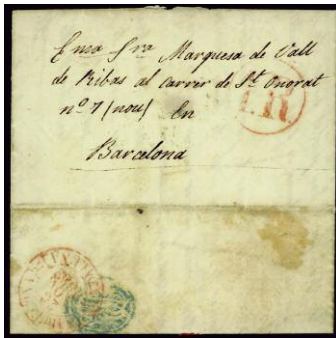 Exma Sra Marquesa de Vall
de Ribas al carrer de St. Onorat
nº 7 (nou) En
Barcelona
1R